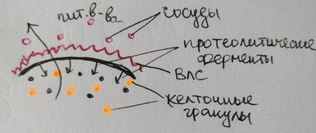 пит. в-ва
сосуды
протеолитические
ферменты
ВЛС
желточные
гранулы